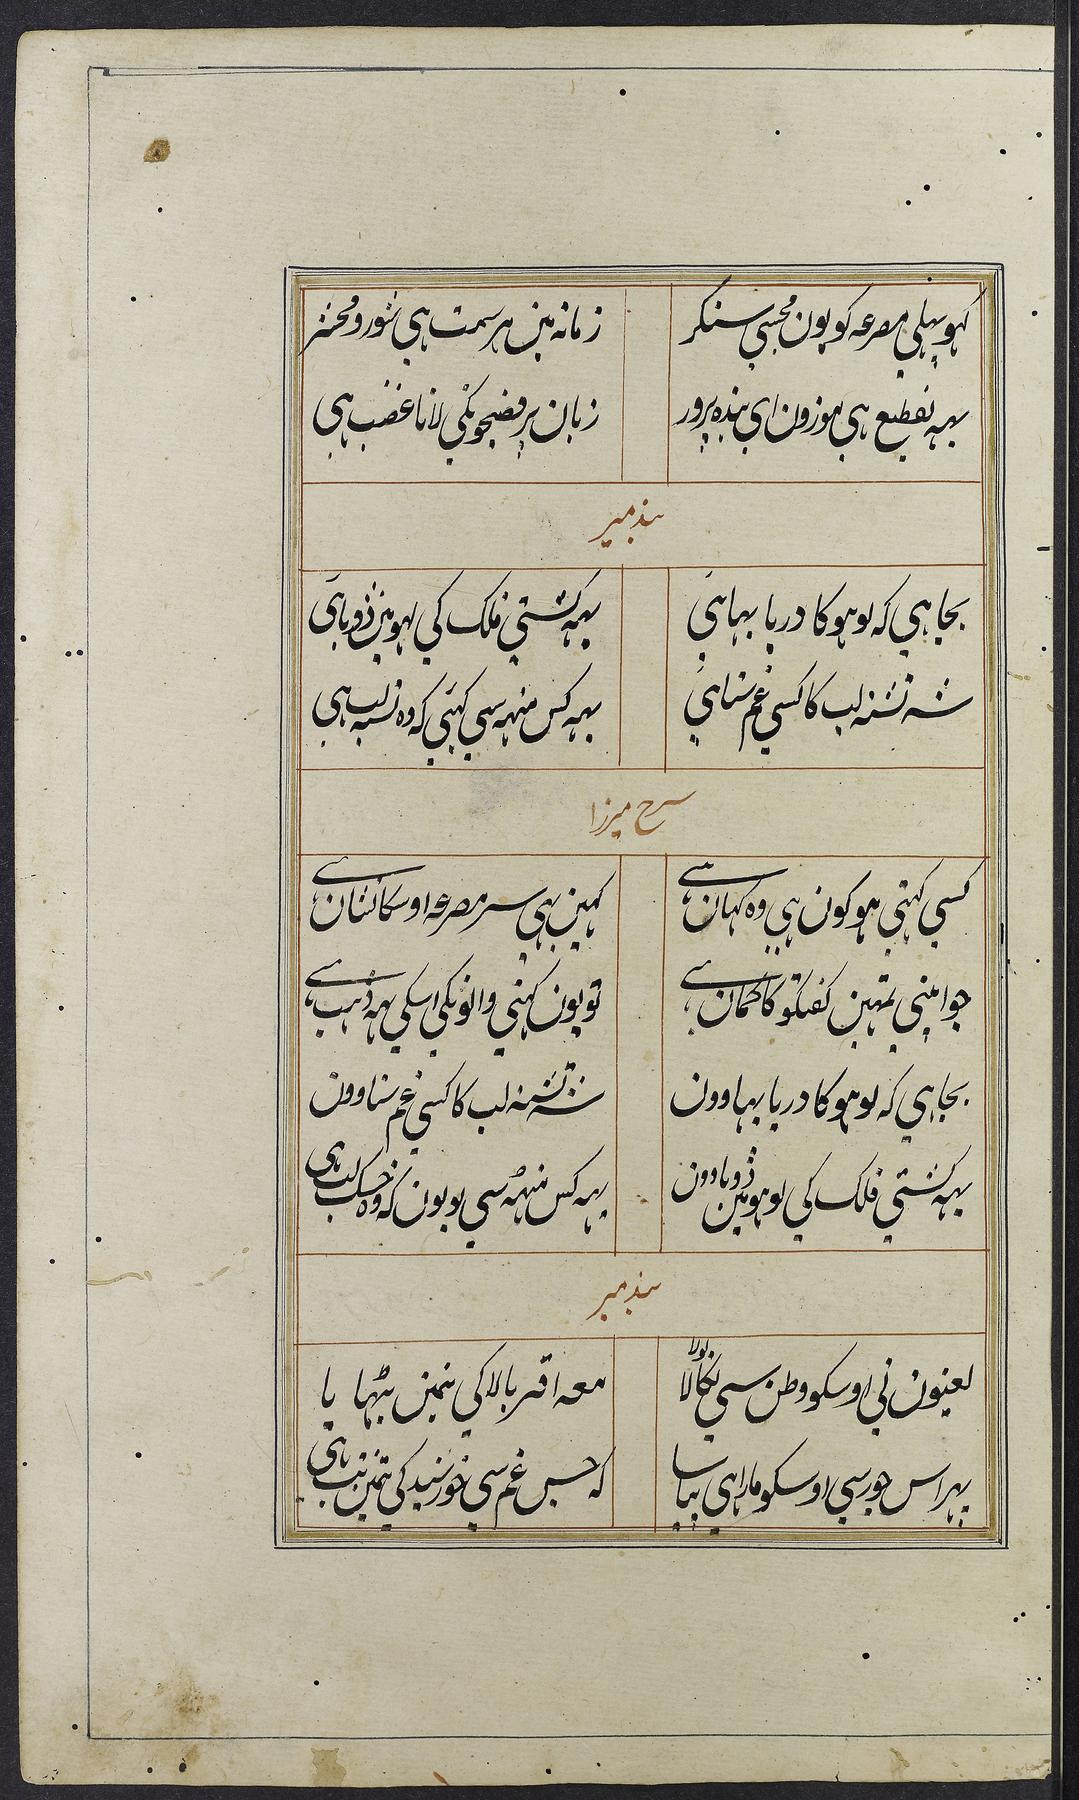 کہو پہلی مصرعہ کو یون مجسی سنکر
زمانہ مین ہر سمت ہی شور و محشر
یہہ تقطیع ہی موزون ای بندہ پرور
زبان پر فضیحونکی لانا غضب ہی
بند میر
بجا ہی کہ لوہو کا دریا بہا ہی
یہہ کشتی فلک کی لہو مین ڈوبا ہی
شہ تشنہ لب کا کسی غم سنا ہی
یہہ کس منہہ سی کہئی کہ وہ تشنہ لب ہی
شرح میرزا
کسی کہتی ہو کون ہی وہ کہان ہے
کہین ہی سر مصرعہ اوسکا نشان ہے
جو اپنی تمہین کفتکو کا کمان ہے
تو یون کہنی والونکی اسکی یہہ ڈہب ہے
بجا ہی کہ لوہو کا دریا بہاوون
شہ تشنہ لب کا کسی غم سناوون
یہہ کشتی فلک کی لوہو مین ڈوباوون
یہہ کس منہہ سی بوبون کہ وہ خشک لب ہی
بند میر
لعینون نی اوسکو وطن سی نکالا
معہ اقربا لاکی بنمین بٹہا یا
پہر اس جور سی اوسکو مارا ہی پیاسا
کہ جس غم سی خورشید کی تئین تب ہی